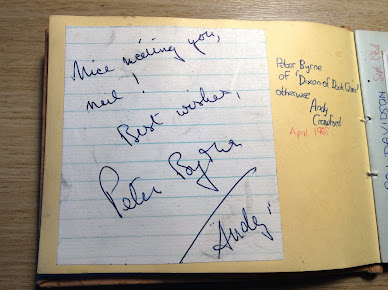 Nice meeting you,
Neil!
Best wishes,
Peter Byrne
"Andy"
Peter Byrne
of "Dixon of Dock Green"
otherwise
Andy
Crawford
April 1965
DAVIDSON